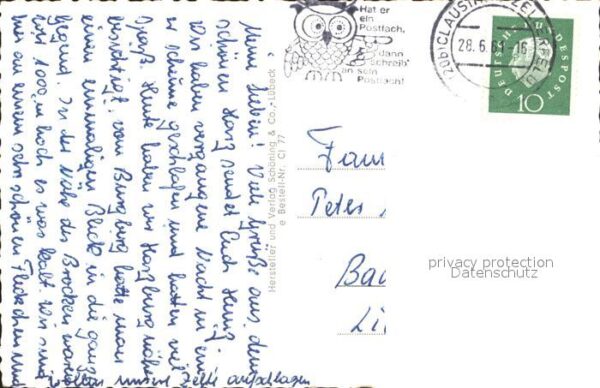 Meine Lieben! Viele Grüße aus dem
schönen Harz sendet Euch
Wir haben vergangene Nacht in
geschlafen und hatten viel
Spaß. Heute haben wir Harzburg
besichtigt, vom Burgberg hatte man
einen einmaligen Blick in die ganze
Gegend. In der Nähe des Brocken waren
wir 1000 m hoch es war kalt. Wir sind
hier an einem sehr schönen Fleckchen und
wollen unsere Zelte aufschlagen
Hersteller und Verlag Schöning & Co., Lübeck
Bestell-Nr. Cl 77
Hat er
ein
Postfach,
dann
schreib'
an sein
Postfach!
(20b) CLAUSTHAL-ZELLERFELD
28.6.61-16
DEUTSCHE BUNDESPOST
10
Fam
Peter
Bad
Li
privacy protection
Datenschutz